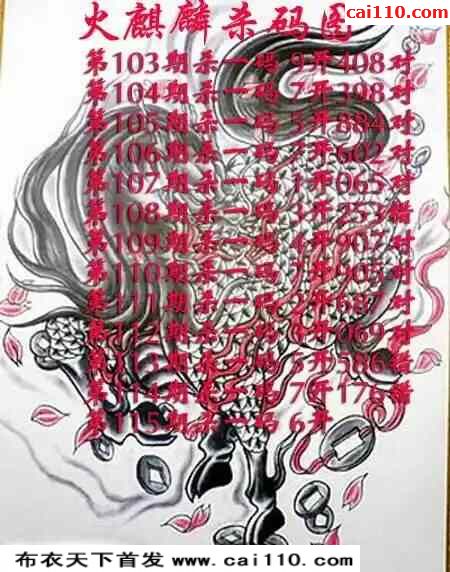 cai110.com
火麒麟杀码图
第103期杀一码9开408对
第104期杀一码7开398对
第105期杀一码5开884对
第106期杀一码7开602对
第107期杀一码1开065对
第108期杀一码3开253错
第109期杀一码4开907对
第110期杀一码 开905对
第111期杀一码 开687对
第112期杀一码 开069对
第113期杀一码5开586错
第114期杀一码7开176错
第115期杀一码6开
布衣天下首发 www.cai110.com